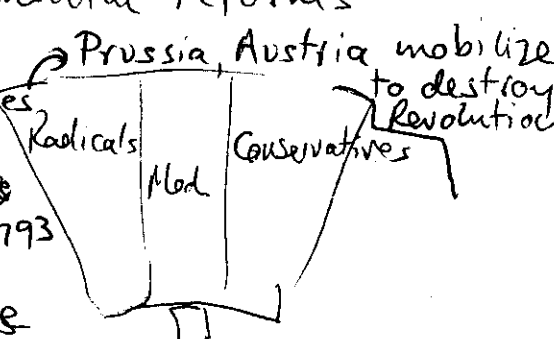 reforms
Prussia, Austria mobilize
to destroy
es
Revolution
Radicals
Med
Conservatives
793